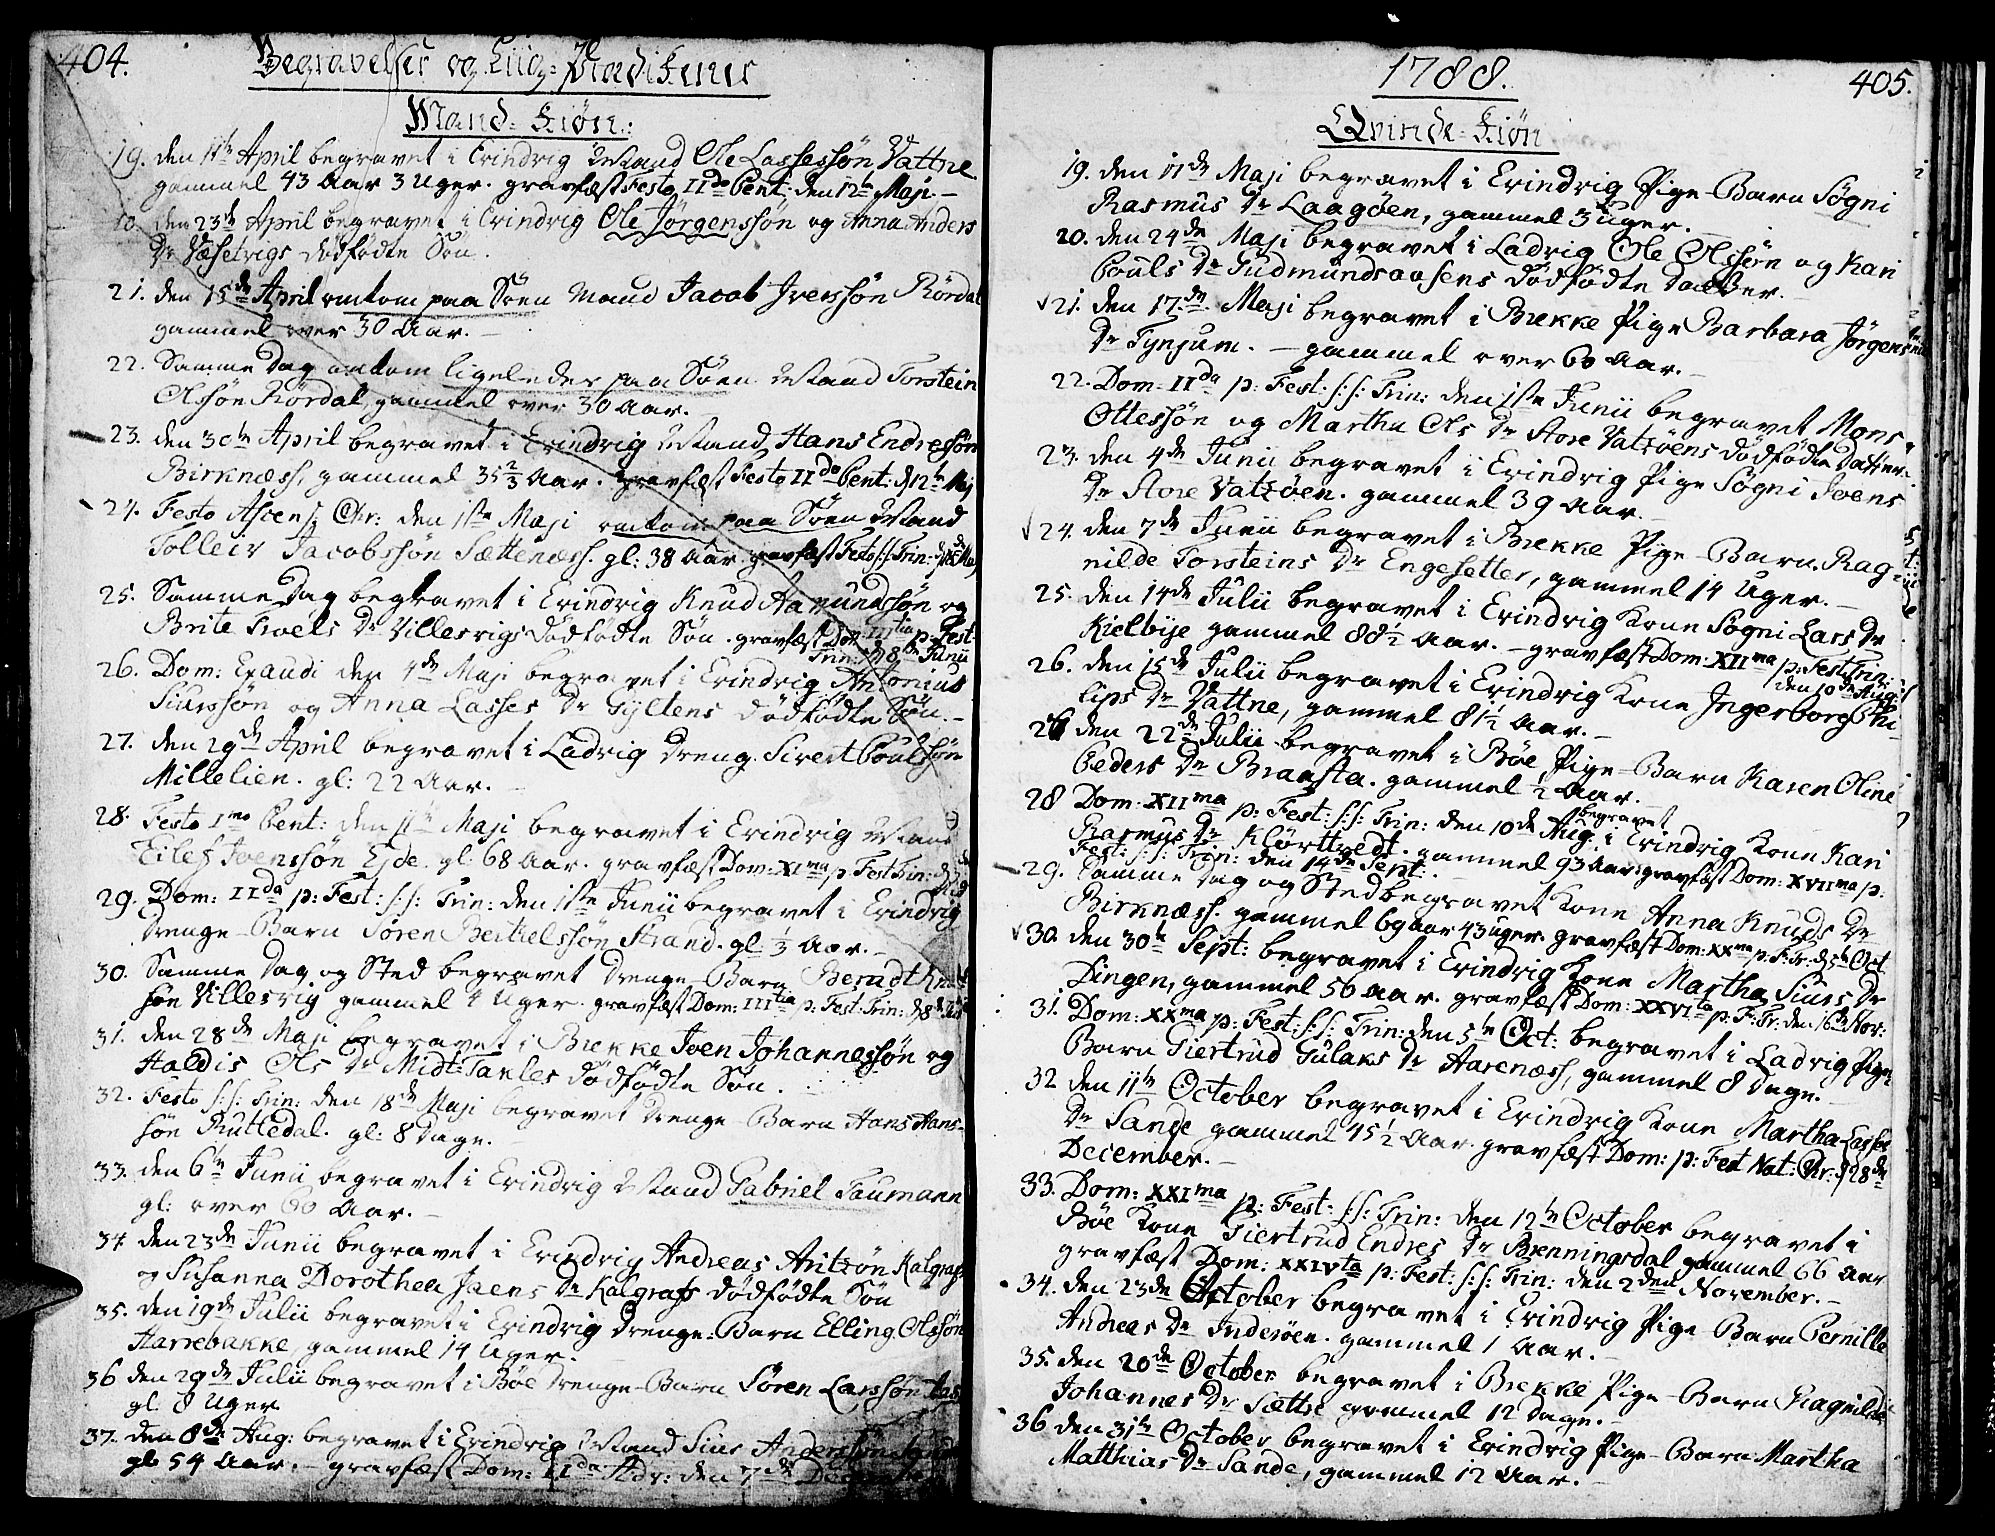 404.
Begravelser og Liig-Prædikener
Mand-Kiøn:
19. den 11te April begravet i Evindvig Mand Ole Lassessøn Vattne
gammel 43 Aar 3 Uger. gravfæst Festo IIdo Pent: den 12te Maji
den 23de April begravet i Evindvig Ole Jørgenssøn og Anna Anders
Dr Væsetvigs dødfødte Søn.
21. den 15de April omkom paa Søen Mand Jacob Iverssøn Rørdal
gammel over 30 Aar.
22. Samme Dag omkom ligeledes paa Søen Mand Torstein
Olssøn Rørdal, gammel over 30 Aar.
23. den 30te April begravet i Evindvig Mand Hans Endressøn
Birknæss, gammel 35 2/3 Aar. gravfæst Festo IIdo Pent: d. 12te Maj
24. Festo Ascens: Chr: den 1ste Maji omkom paa Søen Mand
Tolleiv Jacobssøn Sættenæss. gl: 38 Aar. gravfæst Festo S:S: Trin: d. 18de Maj
25. Samme Dag begravet i Evindvig Knud Aamundssøn og
Brite Troels Dr Villesvigs dødfødte Søn. gravfæst Dom: IIItia p: Fest
Trin: d. 8de Junii
26. Dom: Exaudi den 4de Maji begravet i Evindvig Antonius
Siurssøn og Anna Lasses Dr Gyltens dødfødte Søn.
27. den 29de April begravet i Ladvig Dreng Sivert Poulssøn
Millelien. gl: 22 Aar.
28. Festo Imo Pent: den 11te Maji begravet i Evindvig Mand
Eilef Ivenssøn Ejde. gl: 68 Aar. gravfæst Dom: XIma p Fest Trin:
29. Dom: IIda p: Fest: S:S: Trin: den 1ste Junii begravet i Evindvig
Drenge-Barn Søren Bertelssøn Strand. gl: 1/3 Aar.
30. Samme Dag og Sted begravet Drenge-Barn Berndt Knud
søn Villesvig gammel 4 Uger. gravfæst Dom: IIItia p: Fest: Trin: d. 8de Junii
31. den 28de Maji begravet i Brekke Iven Johannessøn og
Haldis Ols Dr Midt-Tanles dødfødte Søn.
32. Festo S:S: Trin: den 18de Maji begravet Drenge-Barn Hans Hans-
søn Ruttedal. gl: 8 Dage.
33. den 6te Junii begravet i Evindvig Mand Gabriel Taumann
gl: over 60 Aar.
34. den 23de Junii begravet i Evindvig Andreas Antzøn Kalgraf
og Susanna Dorothea Jens Dr Kalgrafs dødfødte Søn
35. den 19de Julii begravet i Evindvig Drenge-Barn Elling Olssøn
Harrebakke, gammel 14 Uger.
36 den 29de Julii begravet i Bøe Drenge-Barn Søren Larssøn
gl. 8 Uger
37. den 8de Aug: begravet i Evindvig Mand Siur Anderssøn
gl 54 Aar. - gravfæst Dom: IIda Adv: den 7de December
1788.
405.
Qvinde-Kiøn
19. den 11de Maji begravet i Evindvig Pige-Barn Søgni
Rasmus Dr Laagøen, gammel 3 Uger.
20. den 24de Maji begravet i Ladvig Ole Olssøn og Kari
Pouls Dr Gudmundsaasens dødfødte Datter.
21. den 17de Maji begravet i Brekke Pige Barbara Jørgens
Dr Tynjum. - gammel over 60 Aar.
22. Dom: IIda p: Fest: S:S: Trin: den 1ste Junii begravet Mons
Ottessøn og Martha Ols Dr Store Vatzøens dødfødte Datter
23. den 4de Junii begravet i Evindvig Pige Søgni Ivens
Dr Store Vatzøen. gammel 39 Aar.
24. den 7de Junii begravet i Brekke Pige-Barn Rag-
nilde Torsteins Dr Engesetter, gammel 14 Uger.
25. den 14de Julii begravet i Evindvig Kone Søgni Lars Dr
Kielbye gammel 88 1/2 Aar. - gravfæst Dom: XIIma p: Fest Trin:
den 10de Aug
26. den 15de Julii begravet i Evindvig Kone Ingerborg Phi-
lips Dr Vattne, gammel 81 1/2 Aar.
26 den 22de Julii begravet i Bøe Pige-Barn Karen Oline
Peders Dr Braasta. gammel 1/2 Aar.
28 Dom: XIIma p: Fest: S:S: Trin: den 10de Aug. begravet i Evindvig Kone Kari
Rasmus Dr Kløvttvedt. gammel 93 Aar. gravfæst Dom: XVIIma p:
Fest: S:S: Trin: den 14de Sept:
29. Samme Dag og Sted begravet Kone Anna Knuds Dr
Birknæss. gammel 69 Aar 43 Uger. gravfæst Dom: XXma p: F: Tr: d. 5te Oct
30. den 30te Sept: begravet i Evindvig Kone Martha Siurs Dr
Dingen, gammel 56 Aar. gravfæst Dom: XXVIta p: F: Tr: den 16de Nov:
31. Dom: XXma p: Fest: S:S: Trin: den 5te Oct: begravet i Ladvig Pige
Barn Giertrud Gulaks Dr Aarenæss, gammel 8 Dage.
32 den 11te October begravet i Evindvig Kone Martha Lasses
Dr Sande gammel 45 1/2 Aar. gravfæst Dom: p: Fest Nat: Chr: d. 28de
December.
33. Dom: XXIma p: Fest: S:S: Trin: den 12te October begravet i
Bøe Kone Giertrud Endres Dr Brenningsdal gammel 66 Aar
gravfæst Dom: XXIVta p: Fest: S:S: Trin: den 2den November.
34. den 23de October begravet i Evindvig Pige-Barn Pernille
Andreas Dr Inderøen. gammel 1 Aar.
35. den 20de October begravet i Brekke Pige-Barn Ragnilde
Johannes Dr Sættre gammel 12 Dage.
36 den 31te October begravet i Evindvig Pige-Barn Martha
Matthias Dr Sande, gammel 12 Aar.